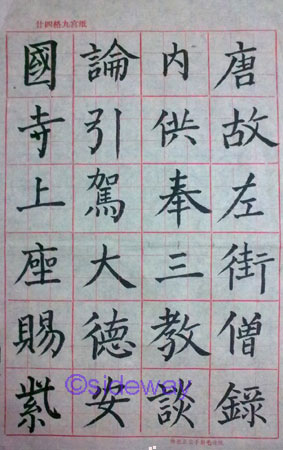 廿四格九宮紙
唐故左街僧錄
內供奉三教談
論引駕大德安
國寺上座賜紫
©sideway